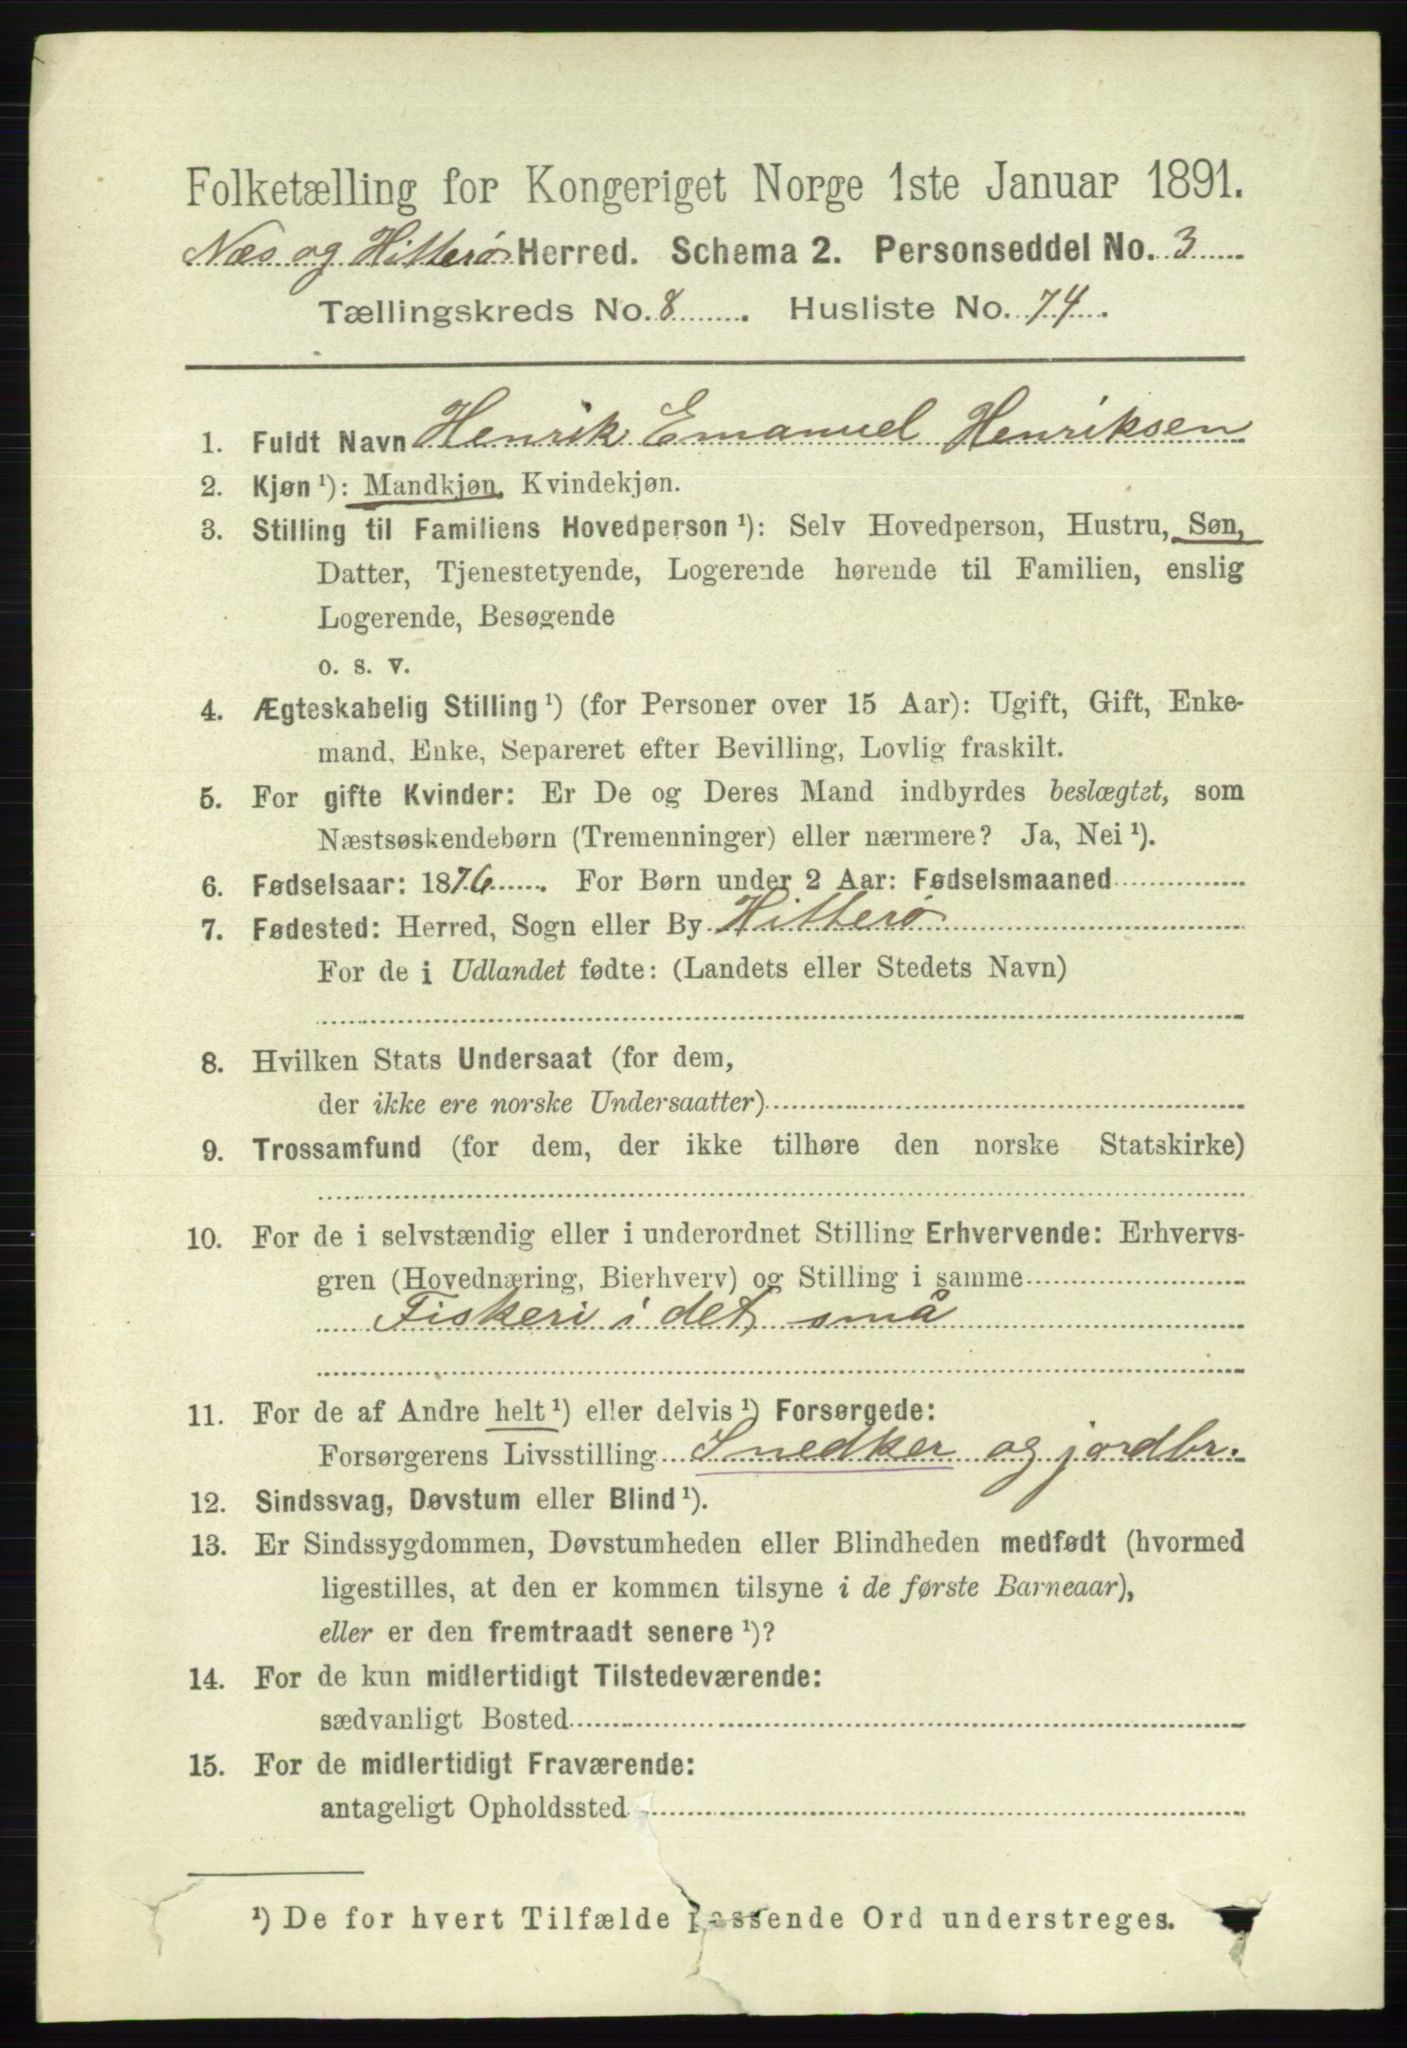 Folketælling for Kongeriget Norge 1ste Januar 1891.
Næs og Hitterø Herred. Schema 2. Personseddel No. 3
Tællingskreds No. 8 . Husliste No. 74 .
1. Fuldt Navn Henrik Emanuel Henriksen
2. Kjøn ¹): Mandkjøn, Kvindekjøn.
3. Stilling til Familiens Hovedperson ¹): Selv Hovedperson, Hustru, Søn,
Datter, Tjenestetyende, Logerende hørende til Familien, enslig
Logerende, Besøgende
o. s. v.
4. Ægteskabelig Stilling ¹) (for Personer over 15 Aar): Ugift, Gift, Enke-
mand, Enke, Separeret efter Bevilling, Lovlig fraskilt.
5. For gifte Kvinder: Er De og Deres Mand indbyrdes beslægtet, som
Næstsøskendebørn (Tremenninger) eller nærmere? Ja, Nei ¹).
6. Fødselsaar: 1876 . For Børn under 2 Aar: Fødselsmaaned
7. Fødested: Herred, Sogn eller By Hitterø
For de i Udlandet fødte: (Landets eller Stedets Navn)
8. Hvilken Stats Undersaat (for dem,
der ikke ere norske Undersaatter)
9. Trossamfund (for dem, der ikke tilhøre den norske Statskirke)
10. For de i selvstændig eller i underordnet Stilling Erhvervende: Erhvervs-
gren (Hovednæring, Bierhverv) og Stilling i samme
Fiskeri i det små
11. For de af Andre helt ¹) eller delvis ¹) Forsørgede:
Forsørgerens Livsstilling Snedker og jordbr.
12. Sindssvag, Døvstum eller Blind ¹).
13. Er Sindssygdommen, Døvstumheden eller Blindheden medfødt (hvormed
ligestilles, at den er kommen tilsyne i de første Barneaar),
eller er den fremtraadt senere ¹)?
14. For de kun midlertidigt Tilstedeværende:
sædvanligt Bosted
15. For de midlertidigt Fraværende:
antageligt Opholdssted
¹) De for hvert Tilfælde passende Ord understreges.